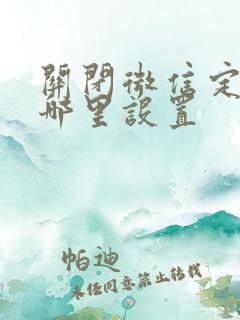 關閉微信定
哪里設置
帕迪
未经同意禁止转载